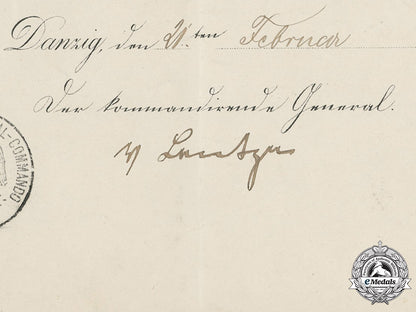 Danzig, den 21.ten Februar
Der kommandirende General.
v Lentze
AL-COMMANDO
eMedals